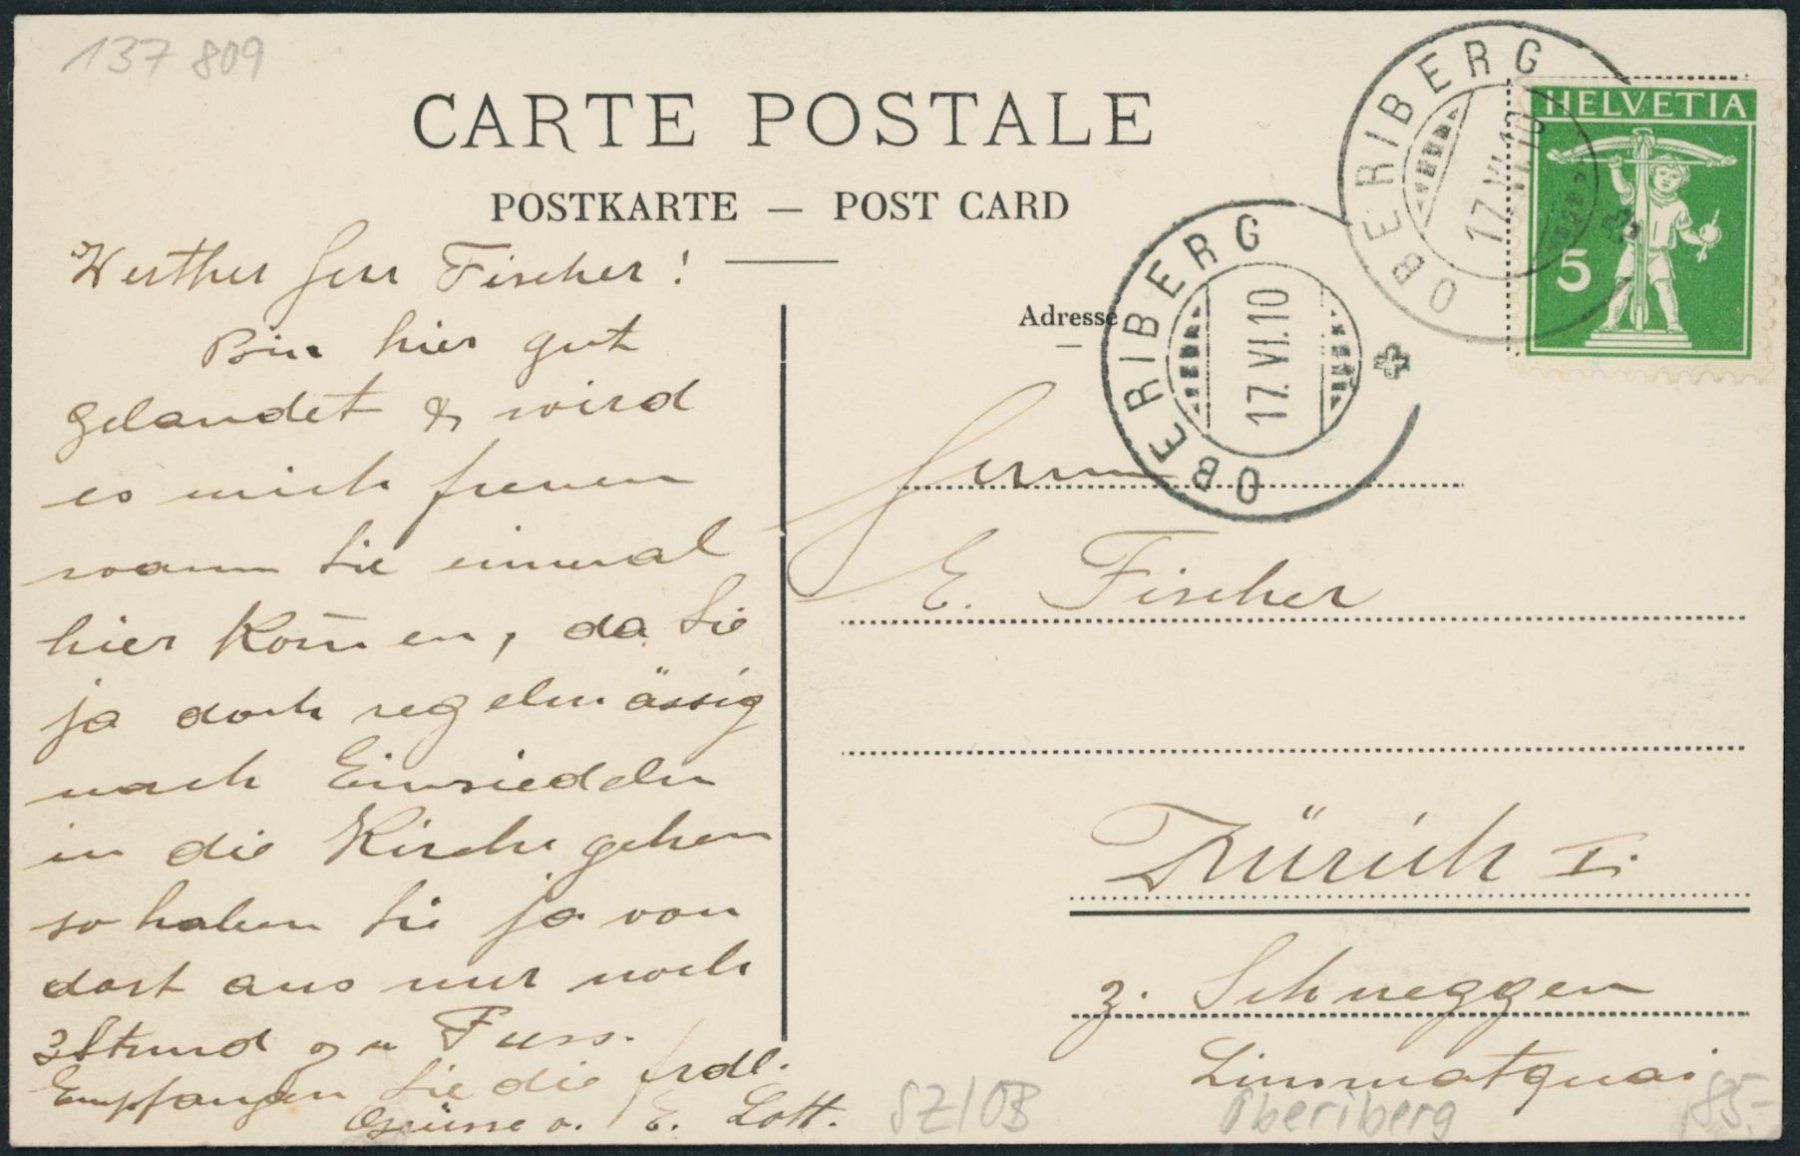 137 809
CARTE POSTALE
POSTKARTE — POST CARD
OBERIBERG
17.VI.10
HELVETIA
5
OBERIBERG
17.VI.10
Werther Herr Fischer!
Bin hier gut
gelandet & wird
es mich freuen
wann Sie einmal
hier kom̄en, da Sie
ja doch regelmässig
nach Einsiedeln
in die Kirche gehen
so haben Sie ja von
dort aus nur noch
3 Stund zu Fuss.
Empfangen Sie die frdl.
Grüsse v. E. Lott.
Adresse
Herrn
E. Fischer
Zürich I.
z. Schneggen
Limmatquai
SZ/OB
Oberiberg
85.-